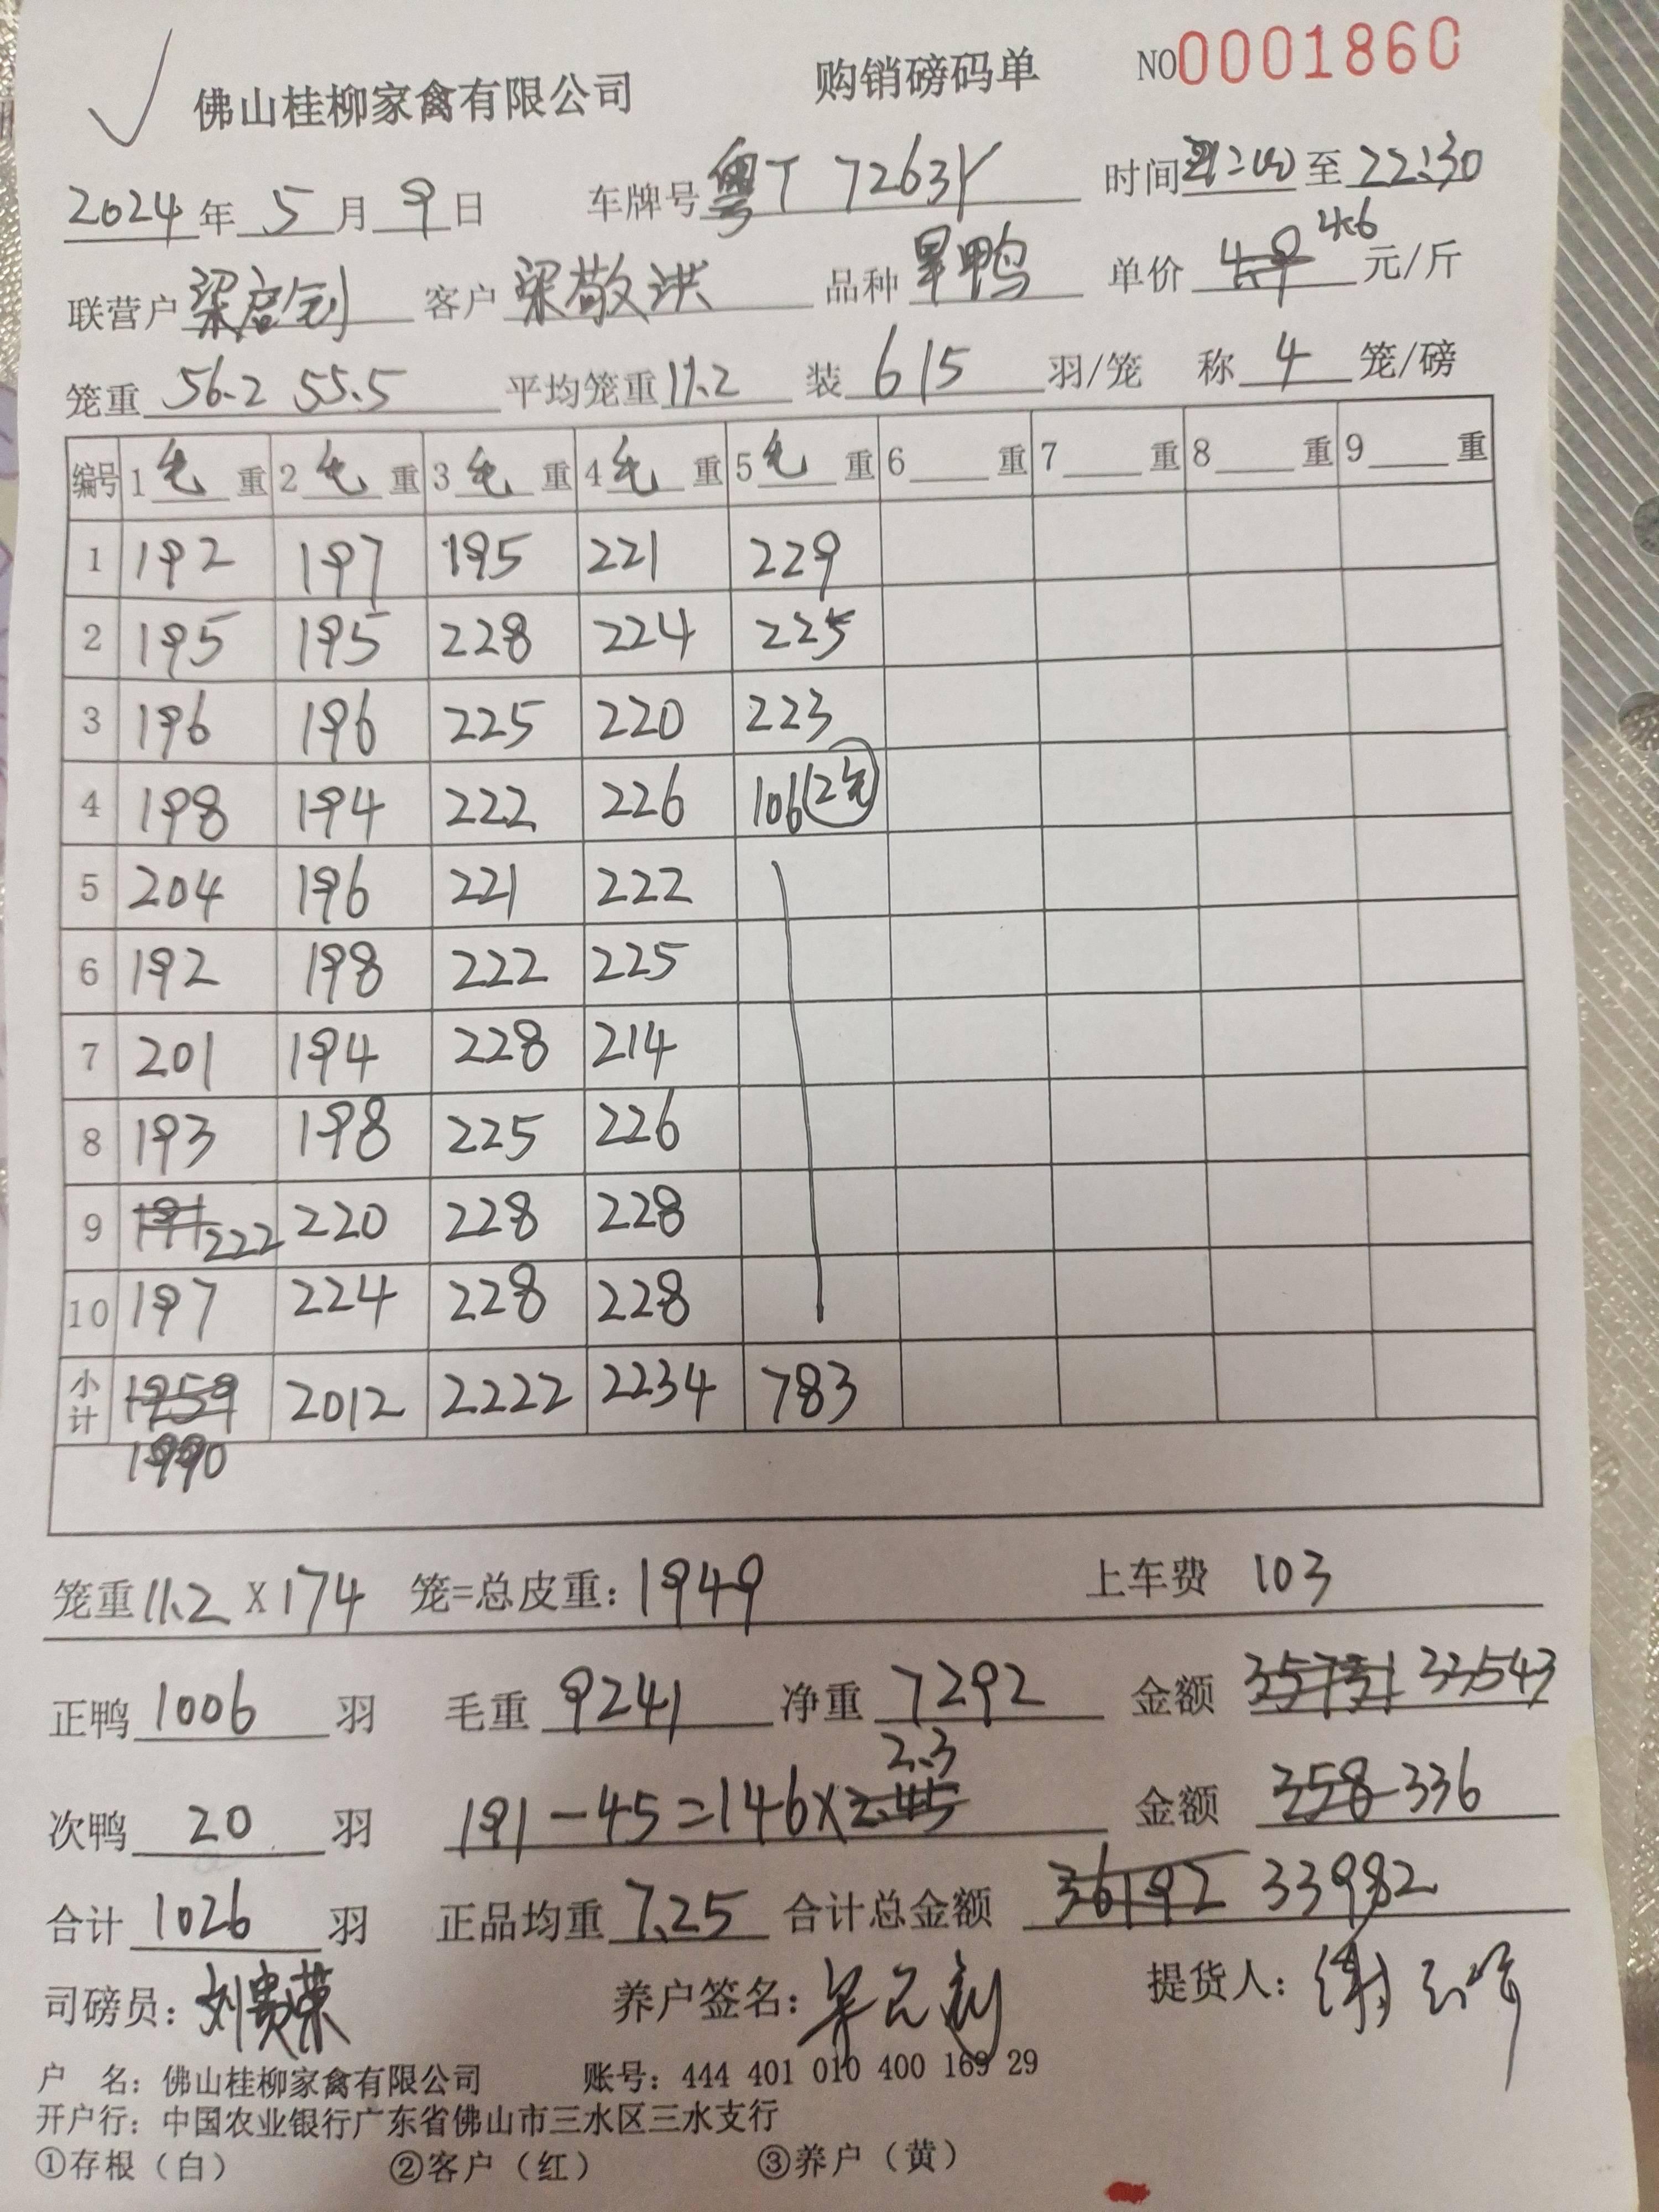 佛山桂柳家禽有限公司 购销磅码单 NO0001860
2024年5月9日 车牌号粤T 7263Y 时间 至22:30
联营户 梁启钊 客户 梁敬洪 品种 旱鸭 单价 4.9 4.6 元/斤
笼重 56.2 55.5 平均笼重11.2 装 6 15 羽/笼 称 4 笼/磅
编号 1毛重 2毛重 3毛重 4毛重 5毛重 6重 7重 8重 9重
1 192 197 195 221 229
2 195 195 228 224 225
3 196 196 225 220 223
4 198 194 222 226 106(2笼)
5 204 196 221 222
6 192 198 222 225
7 201 194 228 214
8 193 198 225 226
9 191 222 220 228 228
10 197 224 228 228
小计 1959 2012 2222 2234 783
1990
笼重11.2X174 笼=总皮重:1949 上车费 103
正鸭 1006 羽 毛重 9241 净重 7292 金额 35731 33543
次鸭 20 羽 191-45=146×2.45 2.3 金额 358 336
合计 1026 羽 正品均重 7.25 合计总金额 36192 33982
司磅员:刘贵荣 养户签名: 提货人:
户 名:佛山桂柳家禽有限公司 账号:444 401 010 400 169 29
开户行:中国农业银行广东省佛山市三水区三水支行
①存根(白) ②客户(红) ③养户(黄)